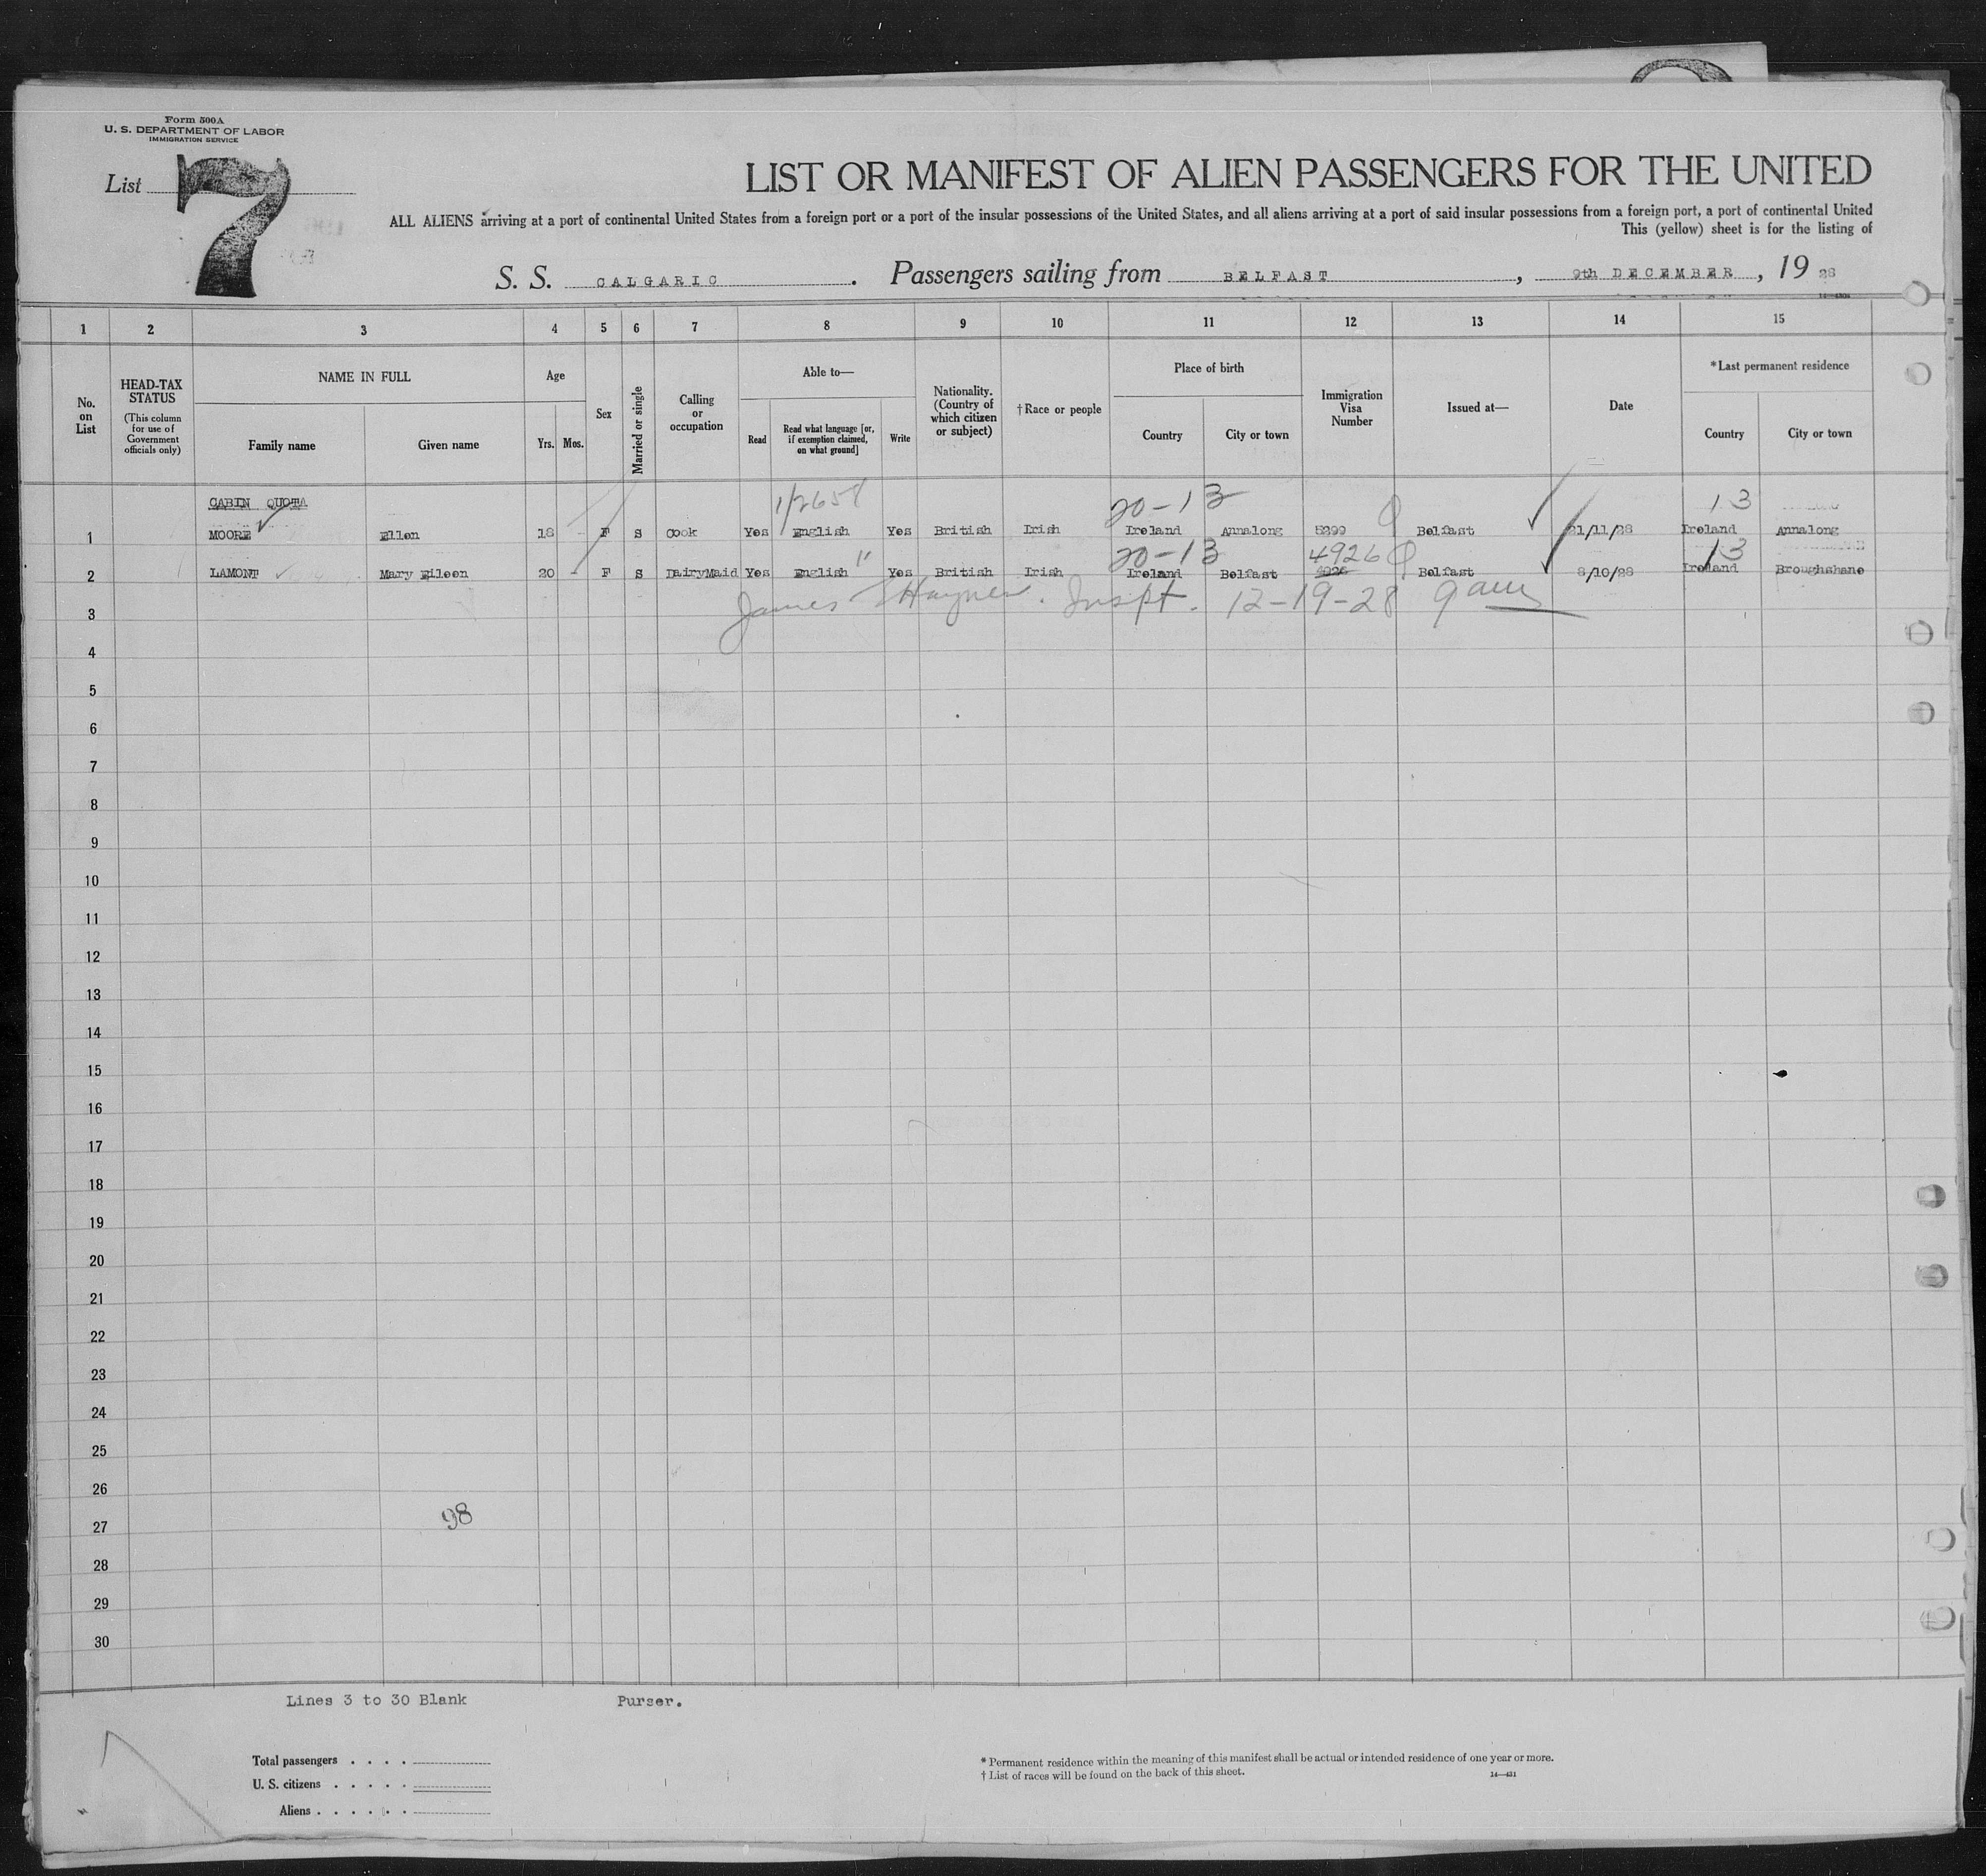 Form 500A
U. S. DEPARTMENT OF LABOR
IMMIGRATION SERVICE
List 7
LIST OR MANIFEST OF ALIEN PASSENGERS FOR THE UNITED
ALL ALIENS arriving at a port of continental United States from a foreign port or a port of the insular possessions of the United States, and all aliens arriving at a port of said insular possessions from a foreign port, a port of continental United
This (yellow) sheet is for the listing of
S. S. CALGARIC. Passengers sailing from BELFAST, 9th DECEMBER, 19 28
1 2 3 4 5 6 7 8 9 10 11 12 13 14 15
No. on List
HEAD-TAX STATUS (This column for use of Government officials only)
NAME IN FULL
Family name Given name
Age
Yrs. Mos.
Sex
Married or single
Calling or occupation
Able to—
Read
Read what language [or, if exemption claimed, on what ground]
Write
Nationality. (Country of which citizen or subject)
†Race or people
Place of birth
Country City or town
Immigration Visa Number
Issued at—
Date
*Last permanent residence
Country City or town
CABIN QUOTA
20-13 13
1 MOORE Ellen 18 F S Cook Yes English Yes British Irish Ireland Annalong 5299 Belfast 21/11/28 Ireland Annalong
" 20-13 4926 13
2 LAMONT Mary Eileen 20 - F S DairyMaid Yes English Yes British Irish Ireland Belfast 4926 Belfast 8/10/28 Ireland Broughshane
3 James Haynes. Inspt. 12-19-28
4
5
6
7
8
9
10
11
12
13
14
15
16
17
18
19
20
21
22
23
24
25
26
27 98
28
29
30
Lines 3 to 30 Blank Purser.
Total passengers . . . .
U. S. citizens . . . . .
Aliens . . . . . .
* Permanent residence within the meaning of this manifest shall be actual or intended residence of one year or more.
† List of races will be found on the back of this sheet.
14—431